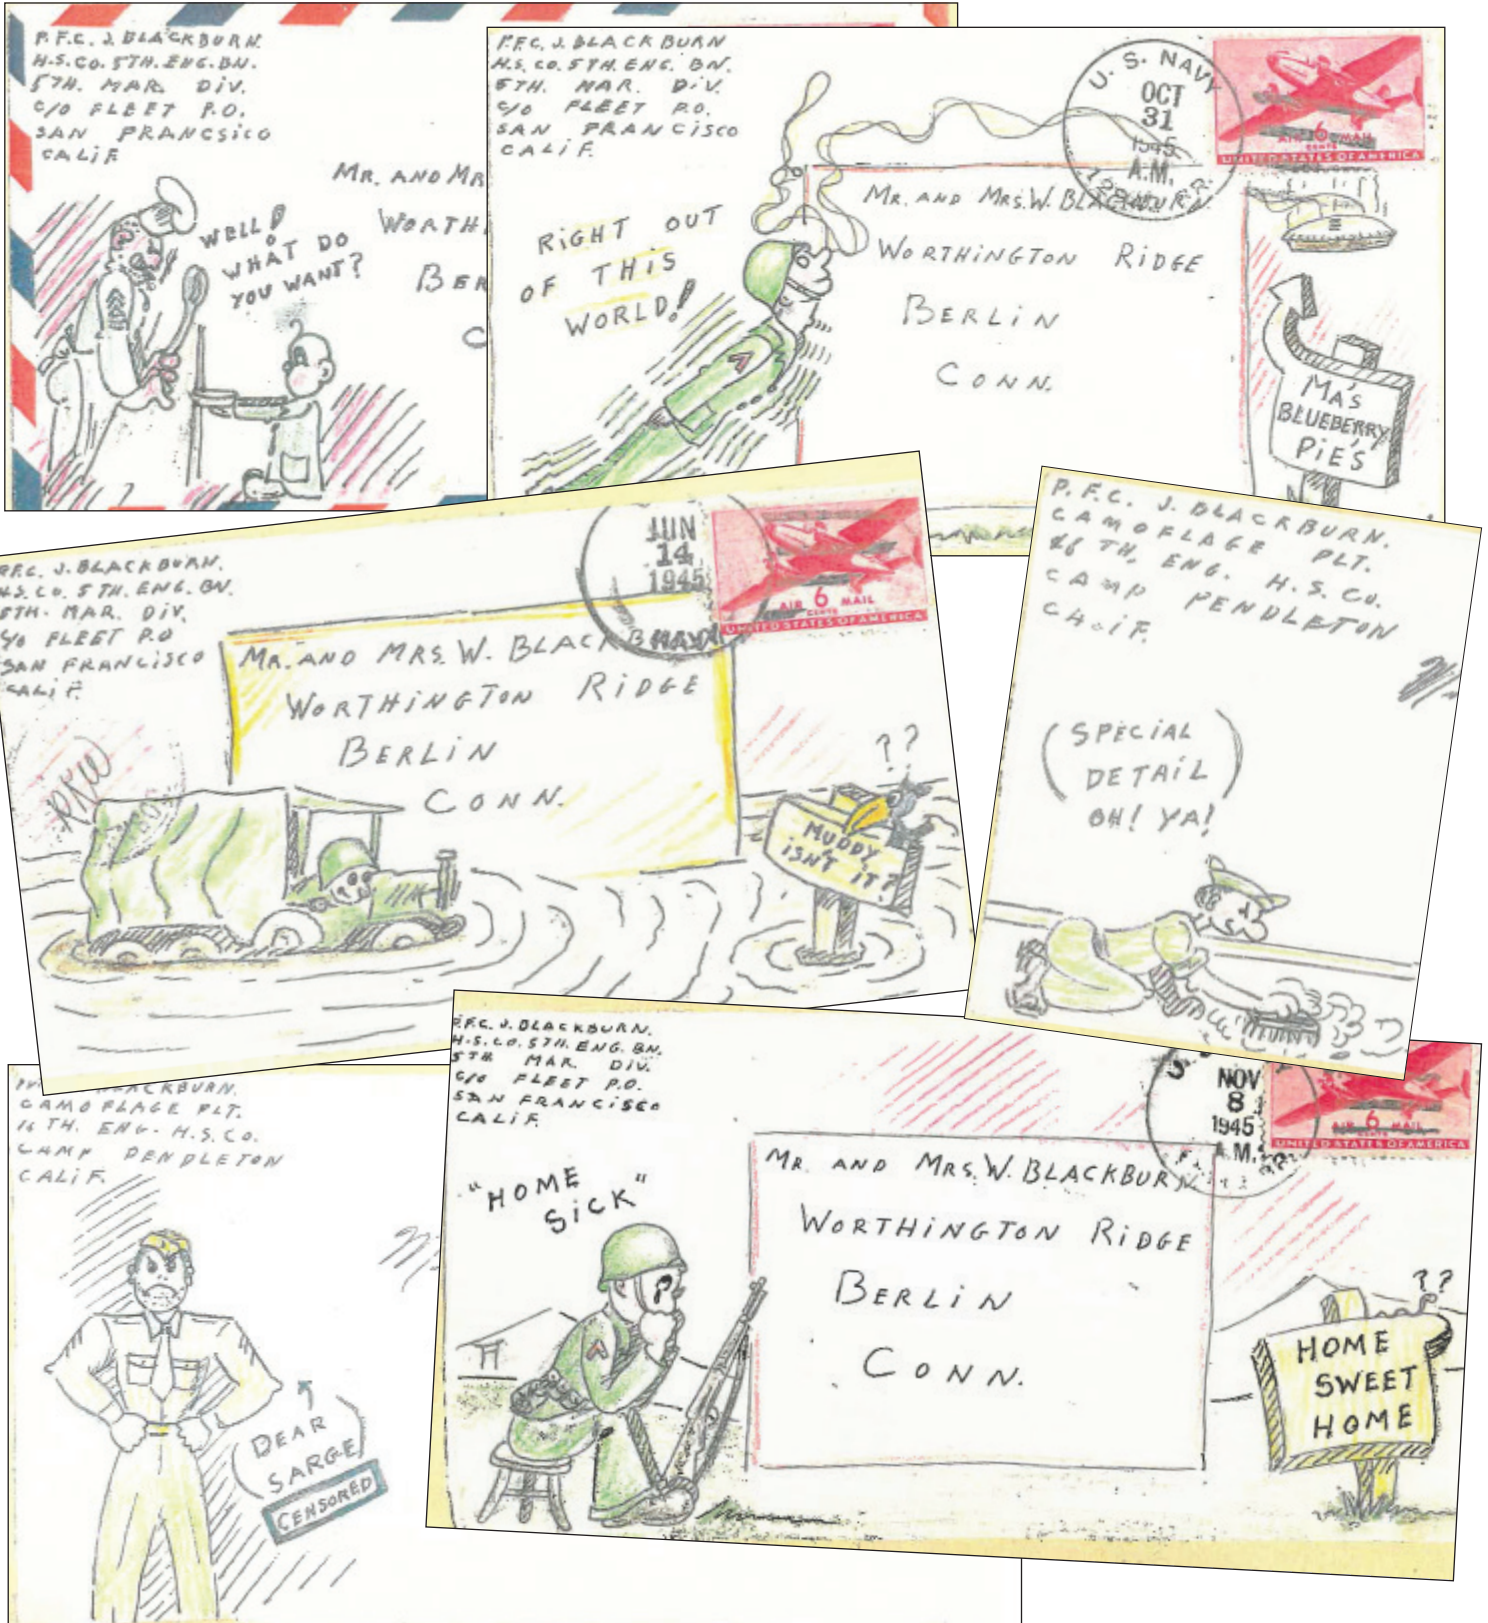 P.F.C. J. BLACKBURN.
H.S. CO. 5TH. ENG. BN.
5TH. MAR. DiV.
C/O FLEET P.O.
SAN FRANCSiCO
CALiF
MR. AND MR
WORTH
BER
C
WELL!
WHAT DO
YOU WANT?
P.F.C. J. BLACKBURN
H.S. CO. 5TH. ENG. BN.
5TH. MAR. DiV.
C/O FLEET P.O.
SAN FRANCiSCO
CALiF.
U. S. NAVY
OCT
31
1945
A.M.
AIR 6 MAIL
CENTS
UNITED STATES OF AMERICA
MR. AND MRS. W. BLACKBURN.
WORTHiNGTON RiDGE
BERLiN
CONN.
RiGHT OUT
OF THiS
WORLD!
MA'S
BLUEBERRY
PiE'S
P.F.C. J. BLACKBURN.
H.S. CO. 5TH. ENG. BN.
5TH. MAR. DiV.
C/O FLEET P.O
SAN FRANCiSCO
CALiF.
JUN
14
1945
NAVY
AIR 6 MAIL
CENTS
UNITED STATES OF AMERICA
MR. AND MRS. W. BLACKBURN
WORTHiNGTON RiDGE
BERLiN
CONN.
RKW
??
MUDDY,
iSN'T iT?
P.F.C. J. BLACKBURN.
CAMOFLAGE PLT.
16 TH. ENG. H.S. CO.
CAMP PENDLETON
CALiF.
(SPECiAL
DETAiL
OH! YA!)
BLACKBURN.
CAMOFLAGE PLT.
16 TH. ENG. H.S. CO.
CAMP PENDLETON
CALiF.
(DEAR
SARGE)
CENSORED
P.F.C. J. BLACKBURN.
H.S. CO. 5TH. ENG. BN.
5TH MAR. DiV.
C/O FLEET P.O.
SAN FRANCiSCO
CALiF.
NOV
8
1945
A.M.
AIR 6 MAIL
CENTS
UNITED STATES OF AMERICA
MR. AND MRS. W. BLACKBURN
WORTHiNGTON RiDGE
BERLiN
CONN.
"HOME
SiCK"
??
HOME
SWEET
HOME